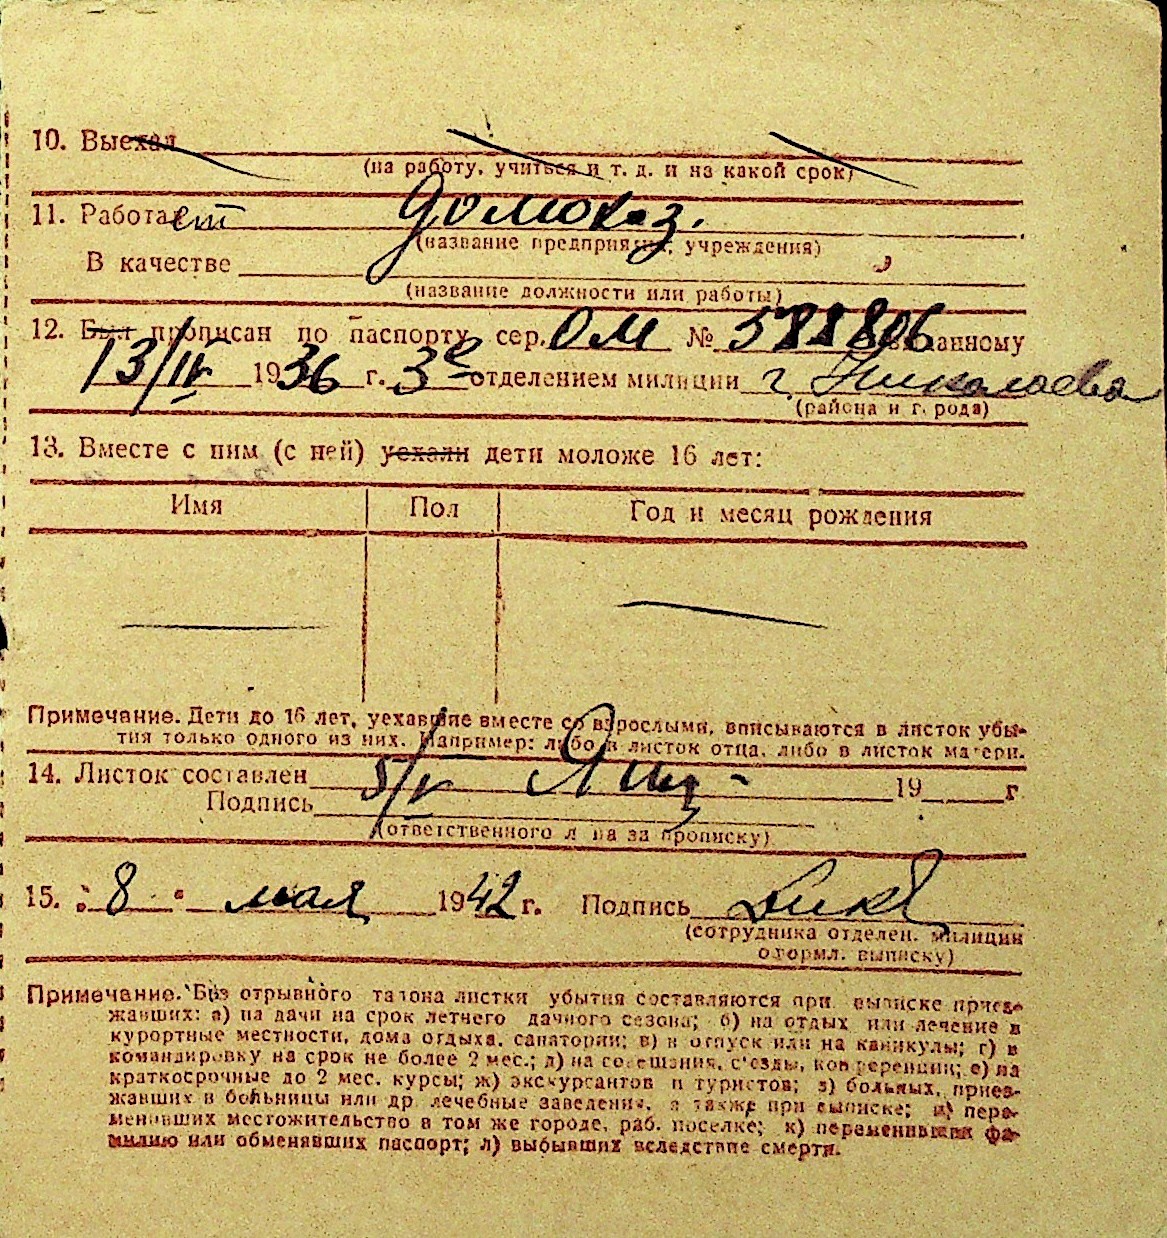 10. Выехал
(на работу, учиться и т. д. и на какой срок)
11. Работает домохоз.
(название предприятия, учреждения)
В качестве
(название должности или работы)
12. Был прописан по паспорту сер. ОМ № 588806 выданному
13/IV 1936 г. 3е отделением милиции г. Николаева
(района и г. рода)
13. Вместе с ним (с ней) уехали дети моложе 16 лет:
Имя Пол Год и месяц рождения
Примечание. Дети до 16 лет, уехавшие вместе со взрослыми, вписываются в листок убы-
тия только одного из них. Например: либо в листок отца, либо в листок матери.
14. Листок составлен 5/V 19 г.
Подпись
(ответственного лица за прописку)
15. „8“ мая 1942 г. Подпись
(сотрудника отделен. милиции
оформл. выписку)
Примечание. Без отрывного талона листки убытия составляются при выписке приез-
жавших: а) на дачи на срок летнего дачного сезона; б) на отдых или лечение в
курортные местности, дома отдыха, санатории; в) в отпуск или на каникулы; г) в
командировку на срок не более 2 мес.; д) на совещания, съезды, конференции; е) на
краткосрочные до 2 мес. курсы; ж) экскурсантов и туристов; з) больных, приез-
жавших в больницы или др. лечебные заведения, а также при выписке; и) пере-
менивших местожительство в том же городе, раб. поселке; к) переменивших фа-
милию или обменявших паспорт; л) выбывших вследствие смерти.